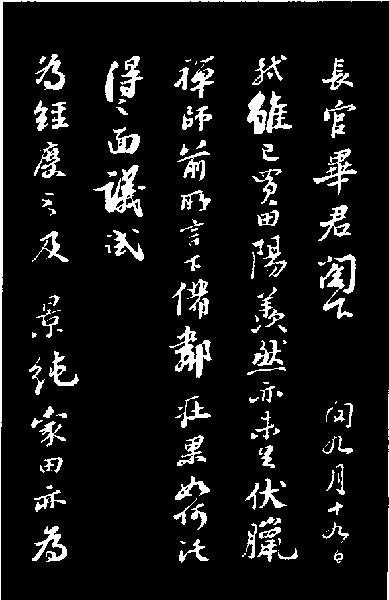 長官畢君閣下 閏九月十九日
軾雖已買田陽羨然亦未足伏臘
禪師前所言下備鄰莊果如何託
得之面議試
為經度之及 景純家田亦為